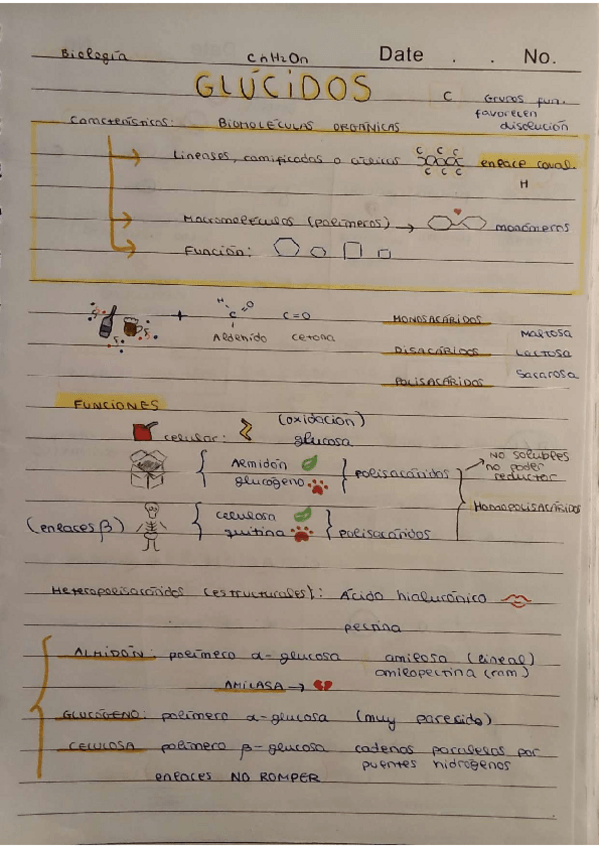 Biología CnH2On Date . . No.
GLÚCIDOS C Grupos fun.
favorecen
disolución
Características: BIOMOLÉCULAS ORGÁNICAS
Lineales, ramificadas o cíclicas C C C C C C enlace coval.
H
Macromoléculas (polímeros) → monómeros
Función:
+ H C O C=O
Aldehído cetona
MONOSACÁRIDOS
DISACÁRIDOS
POLISACÁRIDOS
Maltosa
Lactosa
Sacarosa
FUNCIONES
celular: (oxidación)
glucosa
Almidón
glucógeno
polisacáridos
NO solubles
no poder
reductor
HOMOPOLISACÁRIDOS
(enlaces β)
celulosa
quitina
polisacáridos
Heteropolisacáridos (estructurales): Ácido hialurónico
pectina
ALMIDÓN: polímero α-glucosa amilosa (lineal)
amilopectina (ram)
AMILASA →
GLUCÓGENO: polímero α-glucosa (muy parecido)
CELULOSA polímero β-glucosa cadenas paralelas por
puentes hidrógenos
enlaces NO ROMPER